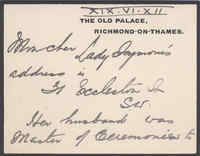 XIX.VI.XII
THE OLD PALACE,
RICHMOND-ON-THAMES.
Mon cher Lady Seymour's
address is
Eccleston
S.W.
Her husband was
Master of Ceremonies to